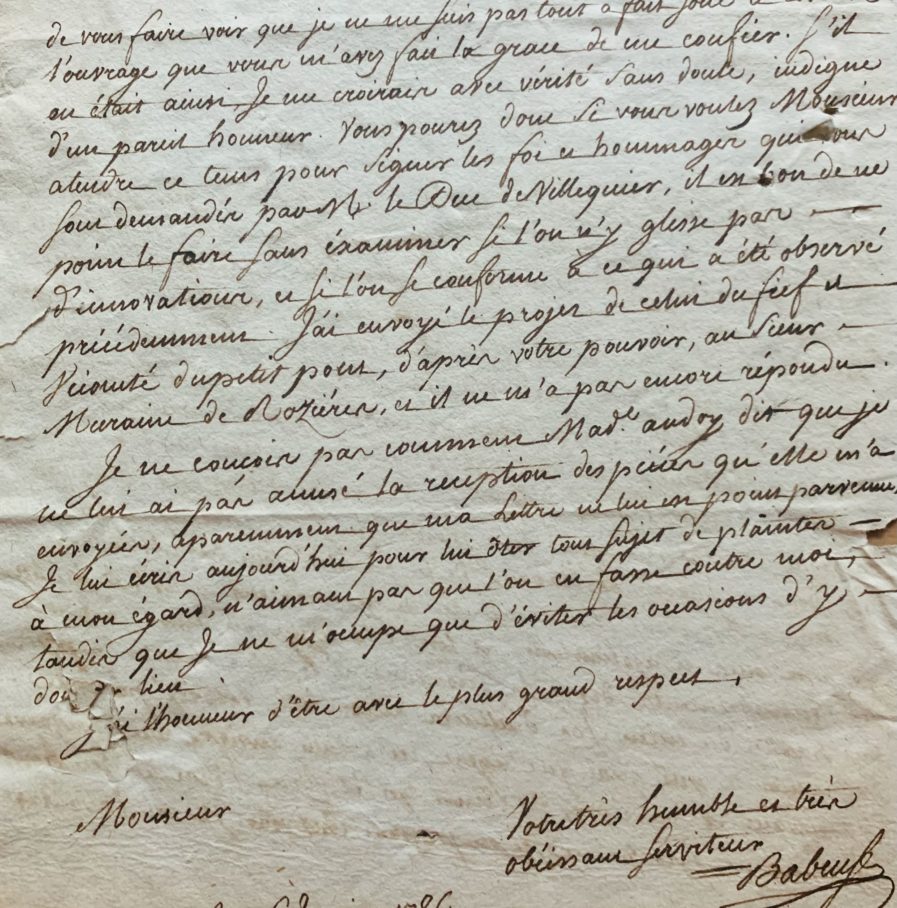 de vous faire voir que je ne me suis pas tout à fait joué à
l'ouvrage que vous m'avez fait la grace de me confier. S'il
en était ainsi, Je me croirais avec vérité sans doute, indigne
d'un pareil honneur. Vous pourez donc si vous voulez Monsieur
atendre ce tems pour signer les foi et hommages qui vous
sont demandés par M. le Duc de Villequier, il est bon de ne
point le faire sans éxaminer si l'on n'y glisse pas
d'innovations, et si l'on se conforme à ce qui a été observé
précédemment. J'ai envoyé le projet de celui du fief et
Vicomté du petit pont, d'après votre pouvoir, au Sieur
Maraine de Rozières, et il ne m'a pas encore répondu.
Je ne conçois pas comment Mad.e audoy dit que je
ne lui ai pas acusé la reception des pièces qu'elle m'a
envoyées, aparemment que ma Lettre ne lui est point parvenue,
Je lui écris aujourd'hui pour lui ôter tous sujet de plaintes
à mon égard, n'aimant pas que l'on en fasse contre moi,
tandis que Je ne m'ocupe que d'éviter les occasions d'y
lieu.
J'ai l'honneur d'être avec le plus grand respect,
Monsieur
Votre très humble et très
obéissant serviteur
Babeuf